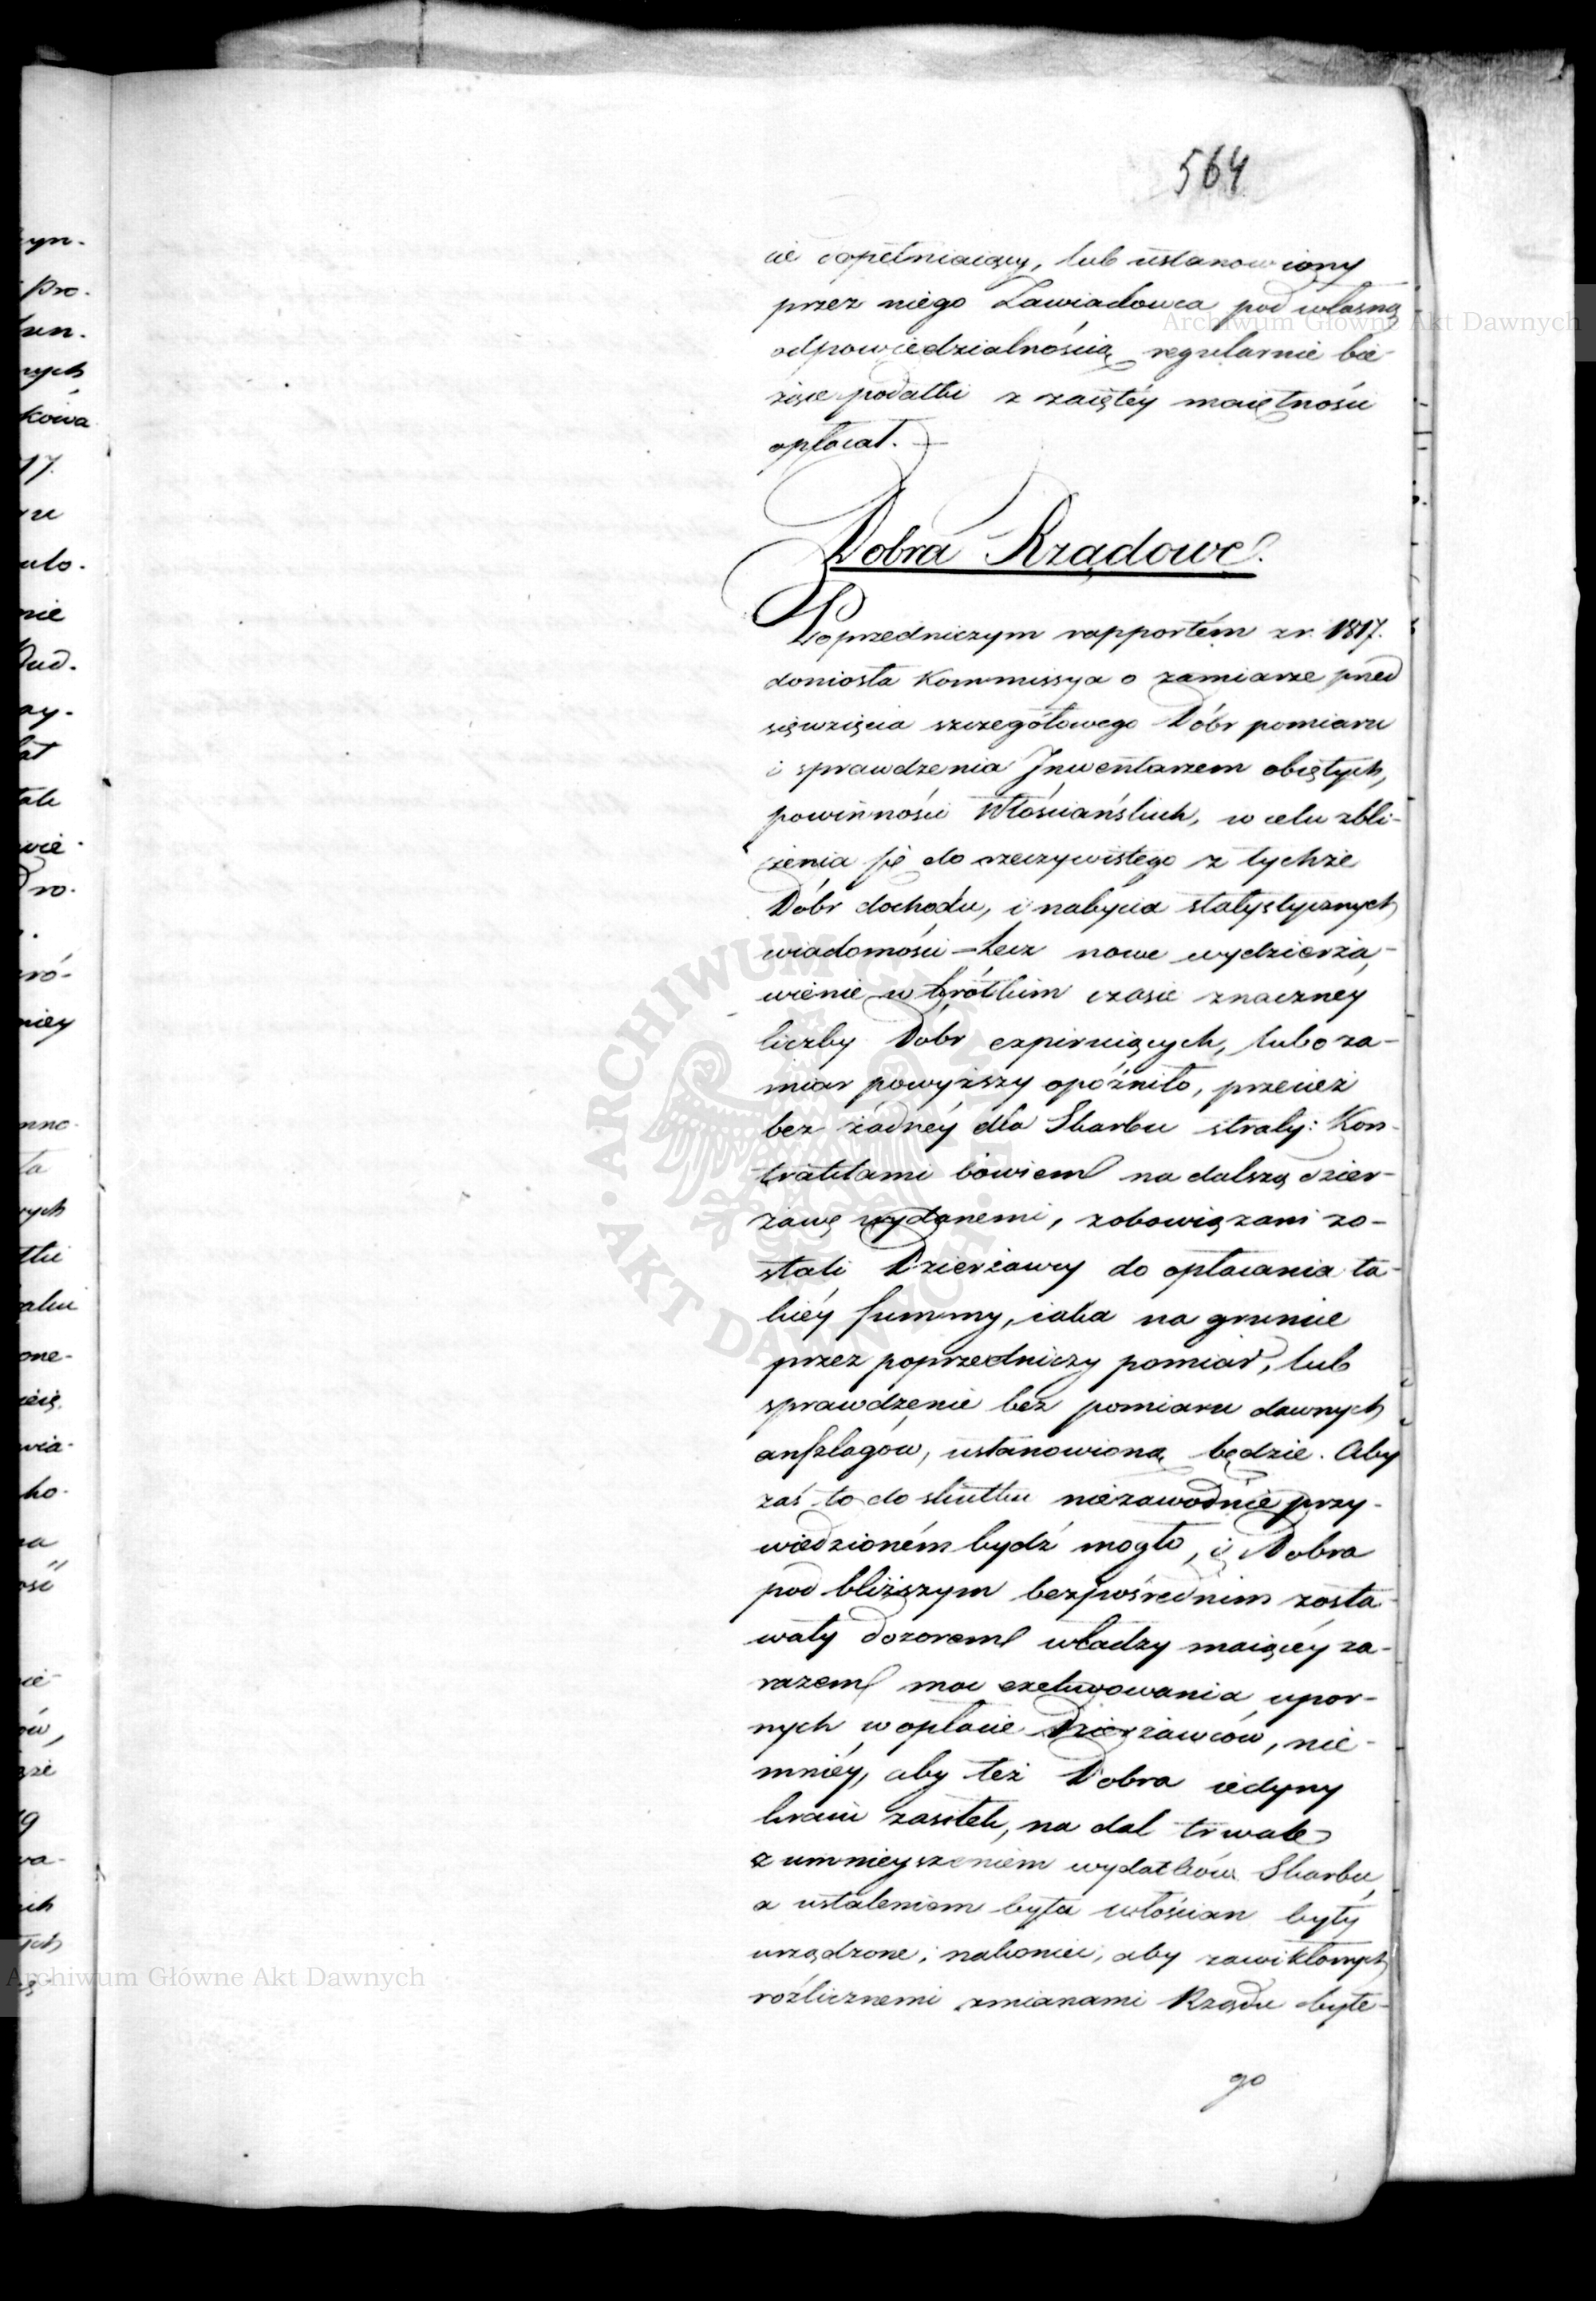 564
cie dopełniaiący, lub ustanowiony
przez niego Zawiadowca pod własną
odpowiedzialnością regularnie bie-
żące podatki z zaiętéy maiętności
opłacał.
Dobra Rządowe.
Poprzedniczym rapportém z r. 1817.
doniosła Kommissya o zamiarze przed
sięwzięcia szczegółowego Dóbr pomiaru
i sprawdzenia Jnwentarzem obiętych,
powinności Włościańskich, w celu zbli-
żenia się do rzeczywistego z tychże
Dóbr dochodu, i nabycia statystycznych
wiadomości = Lecz nowe wydzierża-
wienie w krótkim czasie znaczney
liczby Dóbr expiruiących, lubo za-
miar powyższy opóźniło, przecież
bez żadnéy dla Skarbu straty: Kon-
traktami bowiem na dalszą dzier-
żawę wydanemi, zobowiązani zo-
stali Dzierżawcy do opłacania ta-
kiéy summy, iaka na gruncie
przez poprzedniczy pomiar, lub
sprawdzenie bez pomiaru dawnych
anszlagów, ustanowioną będzie. Aby
zaś to do skutku niezawodnie przy-
wiedzioném bydź mogło, i Dobra
pod bliższym bezpośrednim zosta-
wały dozorem władzy maiącéy za-
razem moc exekwowania upor-
nych w opłacie Dzierżawców, nie-
mniéy, aby też Dobra iedyny
kraiu zasiłek, na dal trwale
z umnieyszeniem wydatków Skarbu,
a ustaleniem bytu włościan były
urządzone; nakoniec, aby zawikłanych
rozlicznemi zmianami Rządu byłe-
go
yn.
pro.
17.
nie
ró-
niey
ych
one-
ho-
ość
ów,
Archiwum Główne Akt Dawnych
ARCHIWUM GŁÓWNE AKT DAWNYCH
Archiwum Główne Akt Dawnych